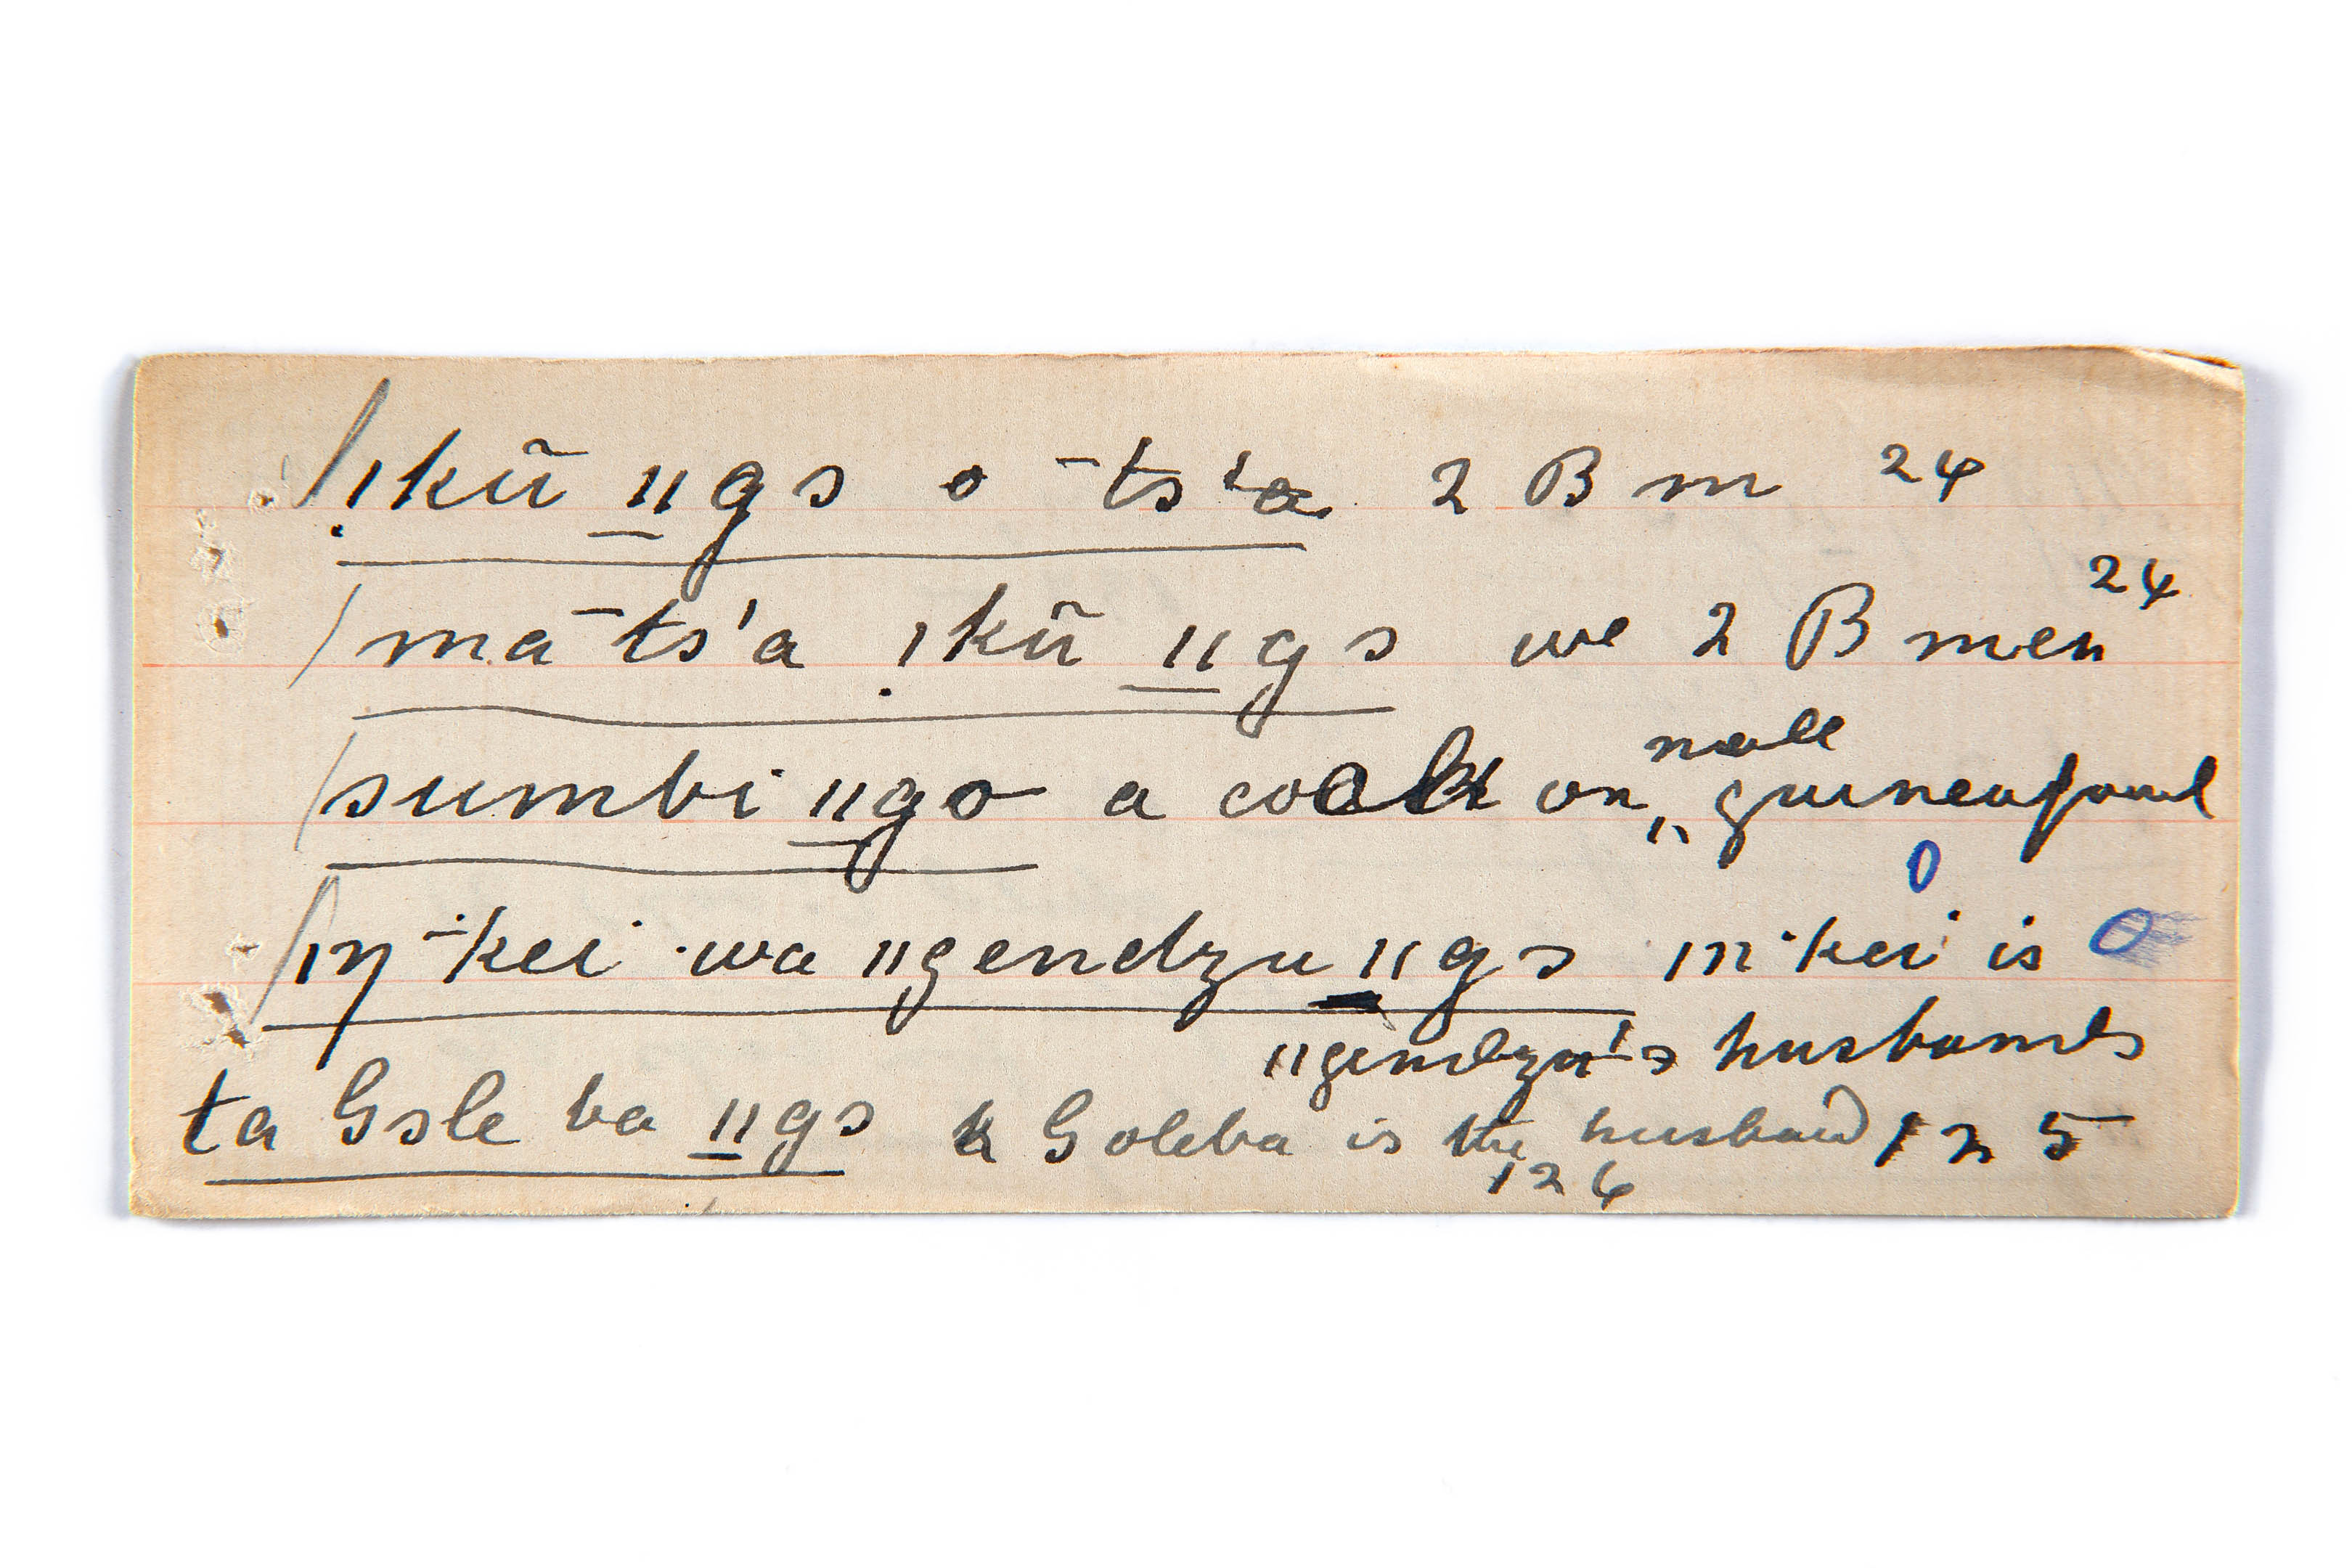 ǃkũ ǁgɔ o ¯ts'a 2 B m 24
ma ¯ts'a ǃkũ ǁgɔ we 2 B men 24
sumbi ǁgo a cock or male guineafowl
ǀŋ ¯kei wa ǁgendzu ǁgɔ ǀn kei is
ǁgendzu's husband
ta Gɔle ba ǁgɔ Goleba is the husband 125
126